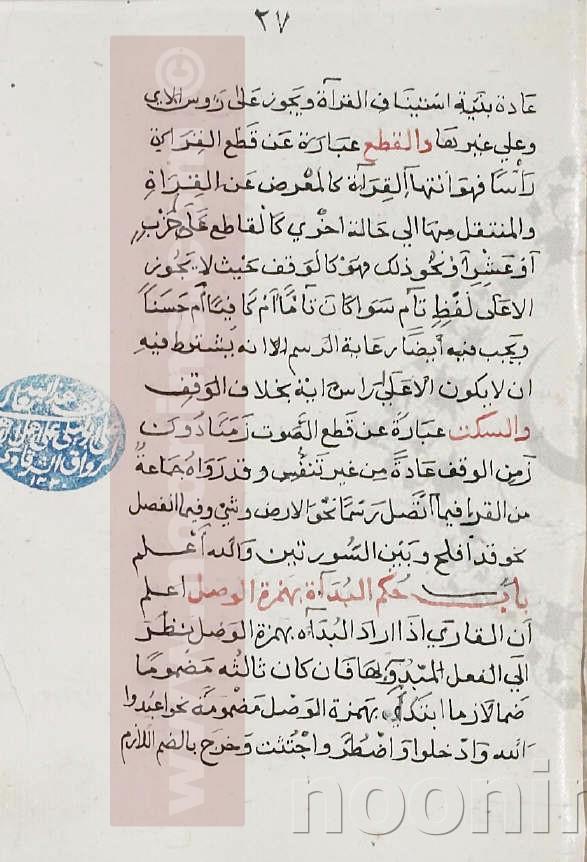 ٢٧
عادة بنية استيناف القرآة ويجوز على روس الاي
وعلي غيرها والقطع عبارة عن قطع القراية
رأسا فهو انتهآ القرآة كالمعرض عن القرآة
والمنتقل منها الي حالة اخري كالقاطع على حزب
أو عشر أو نحو ذلك فهو كالوقف بحيث لا يجوز
الاعلى لفظ تآم سوا كان تآمًّا أم كافيًا أم حسنًا
ويجب فيه أيضًا رعاية الرسم الا انه يشترط فيه
ان لا يكون الا على راس اية بخلاف الوقف
والسكت عبارة عن قطع الصوت زمنًا دون
زمن الوقف عادةً من غير تنفس وقد رواه جماعة
من القرا فيما اتصل رسمًا نحو الارض وشئ وفيما انفصل
نحو قد أفلح وبين السورتين والله أعلم
باب حُكم البُدآة بهمزة الوصل اعلم
أن القاري اذا اراد البُدآه بهمزة الوصل نظر
الي الفعل المبدوّ بها فان كان ثالثه مضمومًا
ضما لازما ابتدئ بهمزة الوصل مضمومة نحو اعبدوا
الله وادخلوا واضطُرّ واجتُثت وخرج بالضم اللازم
www.
©
noonin